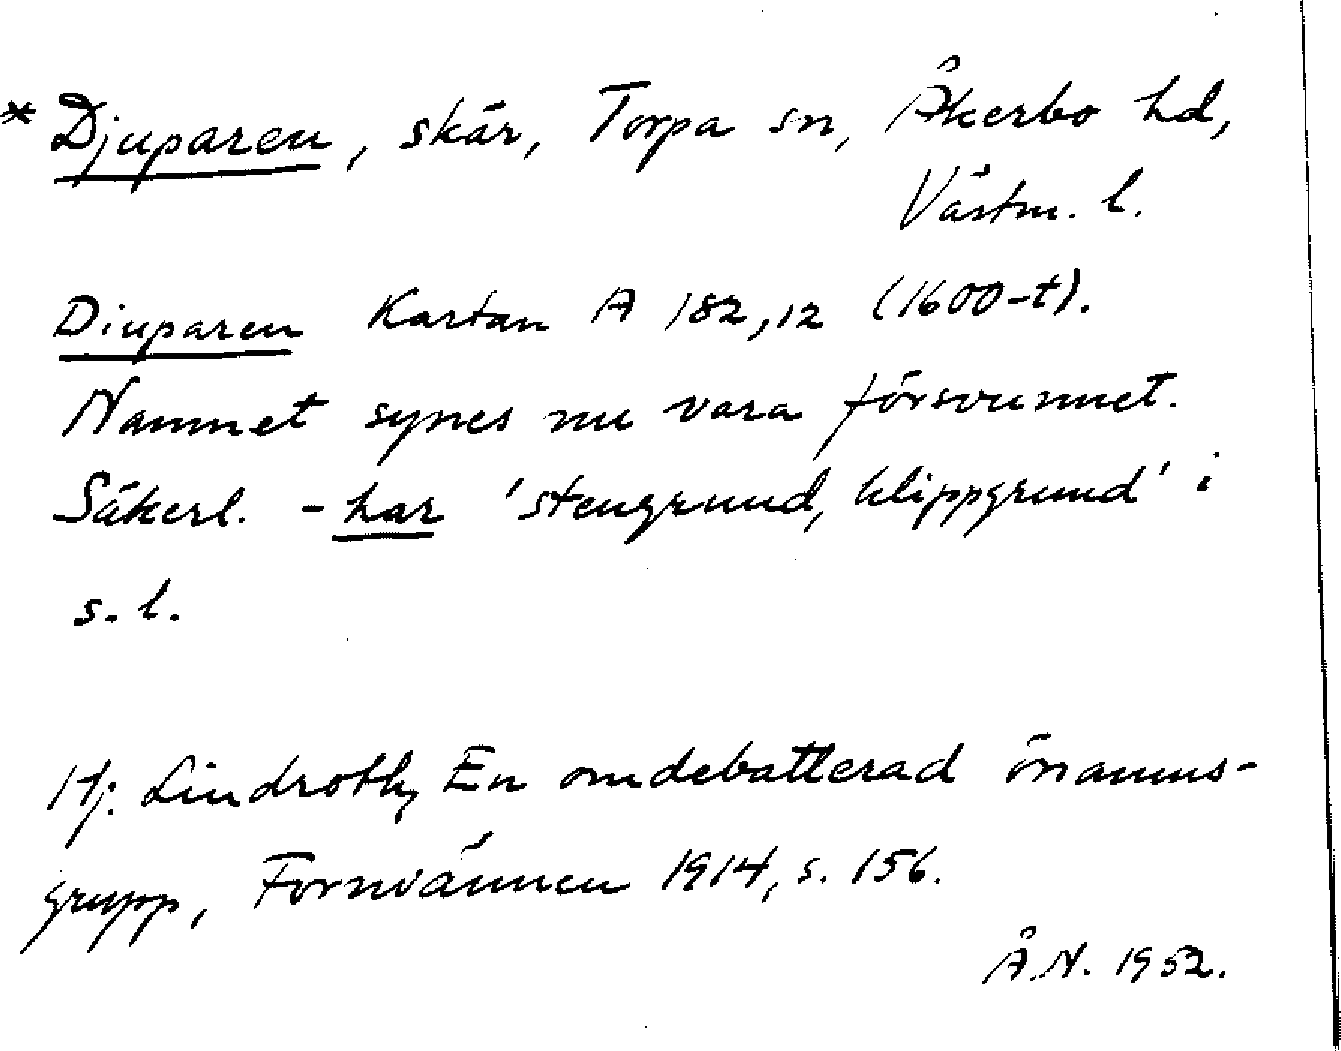 * Djuparen, skär, Torpa sn, Åkerbo hd,
Västm. l.
Diuparen Kartan A 182,12 (1600-t).
Namnet synes nu vara försvunnet.
Säkerl. - har 'stengrund, klippgrund' i
s. l.
Hj. Lindroth, En omdebatterad önamns-
grupp, Fornvännen 1914, s. 156.
Å.N. 1952.